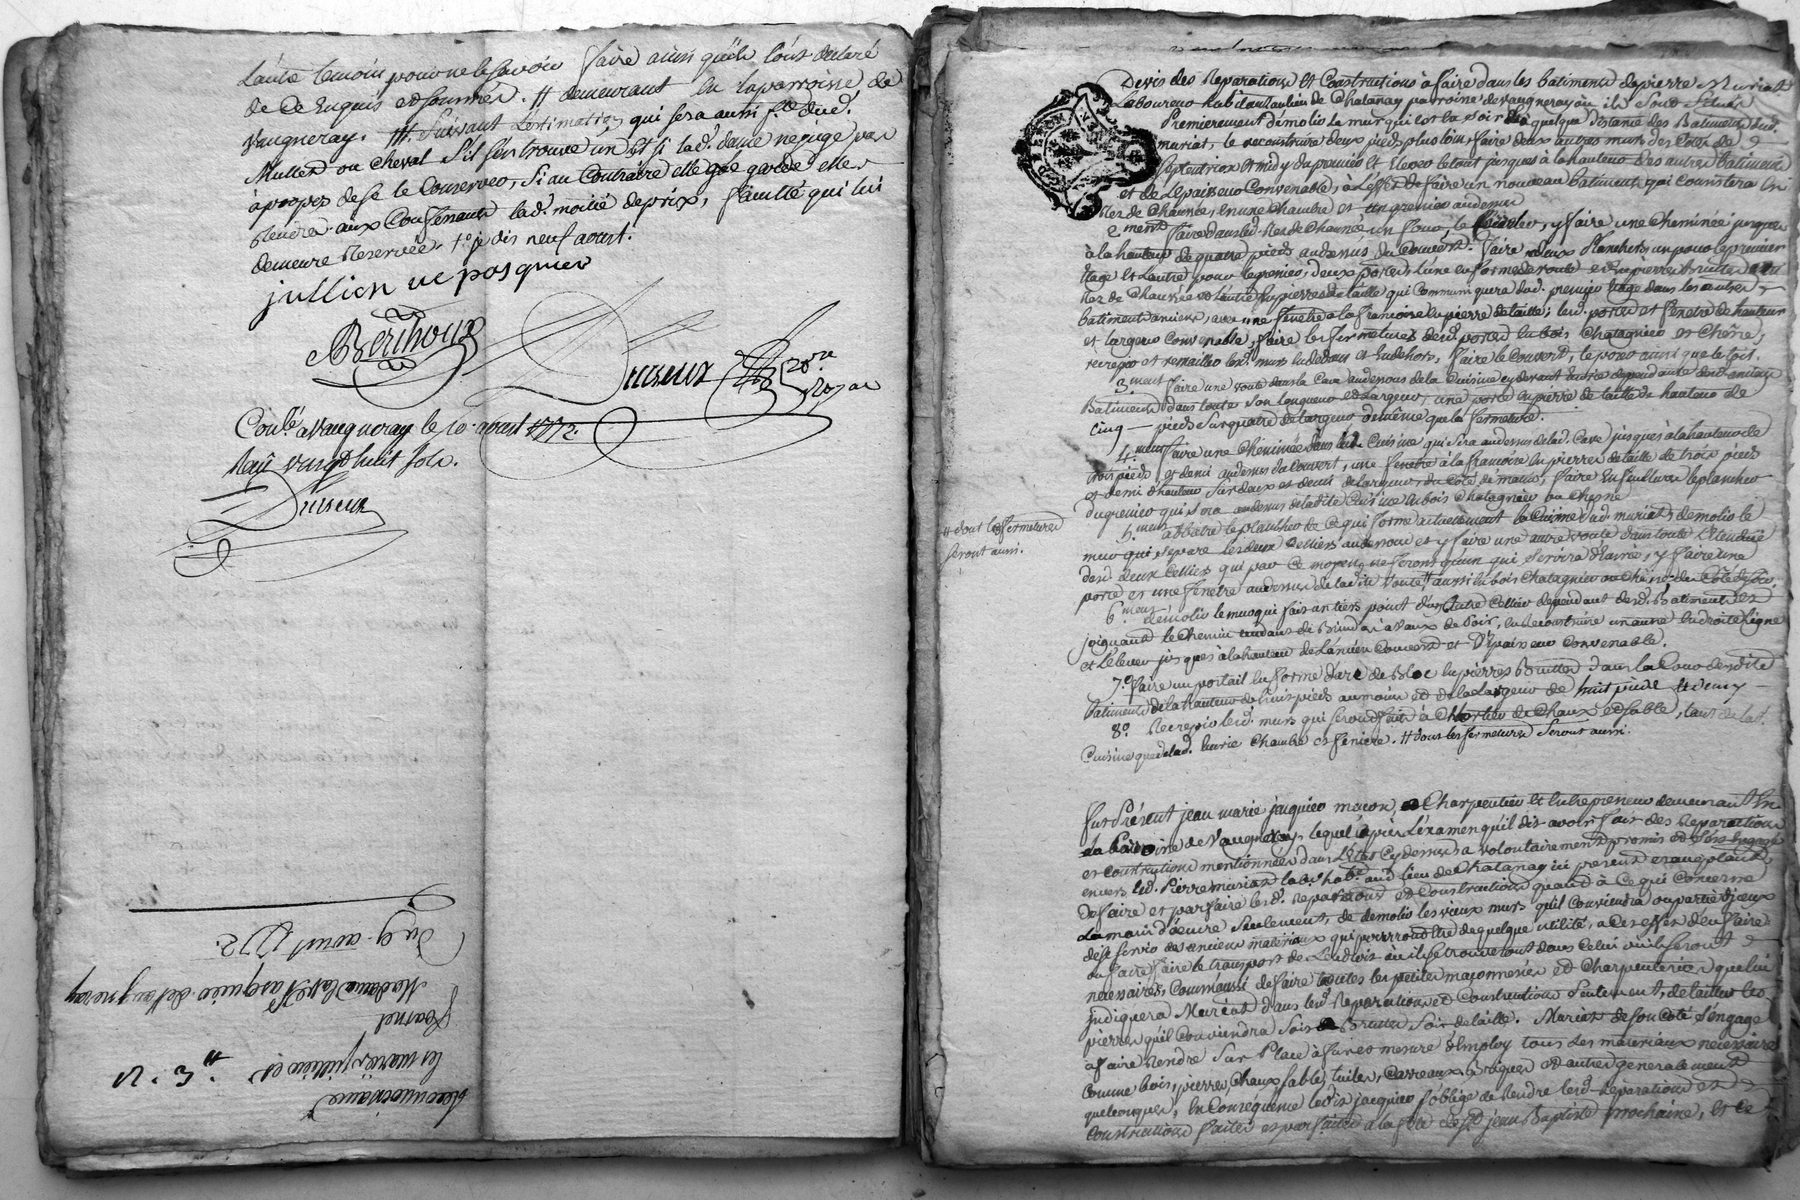 L'autre temoin pour ne le savoir faire ainsi qu'ils l'ont declaré
de ce Enquis et sommés. # demeurant en la parroisse de
vaugneray. ## suivant l'estimation qui sera aussi f.te dud.
Mullet ou cheval s'il s'en trouve un Et si lad. dame néglige pas
à propos de se le Conserver, si au Contraire elle garde elle
rendra aux Confenants lad. moitié de prix, faculté qui lui
demeure Reservée. je dis neuf aoust.
jullien ve pasquier
Berthoux
Duiseux
Con.lé a Vaugneray le 20 aoust 1772.
Reçu vingt huit sols.
Duiseux
Reconnoissance
les marc jullien et
N. 3.
Madame la V.e Pasquier de Vaugneray
Du 9. aout 1772.
Devis des Reparations et Constructions à faire dans les batiments de pierre Muriat
Laboureur habitant au lieu de Chatanay parroisse de vaugneray où ils sont Situés
Premierement démolir le mur qui est la soir à quelque distance des Batiments dud.
muriat, le reconstruire deux pieds plus loin, faire deux autres murs des Cotés de
Septentrion et midy du premier et Elever le tout jusques à la hauteur des autres batiments
et de L'épaisseur Convenable, à l'effet de faire un nouveau batiment qui consistera En
Rez de Chaussée, En une Chambre et Un grenier au dessus
2.ment faire dans led. Rez de Chaussée un four, le y faire une Cheminée jusques
à la hauteur de quatre pieds au dessus du Couvert. faire deux Planchers un pour le premier
Etage Et l'autre pour le grenier, deux portes L'une en forme de voute et En pierre brutte au
rez de Chaussée et l'autre En pierre de taille qui Communiquera du d. premier Etage dans les autres
batiments anciens, avec une fenetre a la francoise En pierre de taille; lesd. portes et fenetre de hauteur
et largeur convenable, faire les fermetures desd. portes En bois Chatagnier et Chêne;
recrepir et remailler lesd. murs En dedans et En dehors, faire le Couvert, le poser ainsi que le toit.
3.ment faire une voute dans la Cave au dessous de la Cuisine cy devant Entree dependante desd. anciens
Batiments dans toute Son longueur et Largeur, une porte En pierre de taille de hauteur de
cinq — pieds Sur quatre de largeur de même que la fermeture.
4.ment faire une Cheminée dans lad. Cuisine qui Sera au dessus de lad. Cave jusques à la hauteur de
trois pieds et demi au dessus du Couvert, une fenetre à la francoise En pierres de taille de trois pieds
et demi d'hauteur Sur deux et demi de largeur, du Coté de matin, faire Ensuite le plancher
du grenier qui Sera au dessus de ladite Cuisine En bois Chatagnier ou Chesne
5.ment abbatre le plancher de Ce qui forme actuellement la Cuisine dud. muriat, demolir le
mur qui Separe les deux Celliers au dessous et y faire une autre voute dans toute l'Etendüe
desd. deux Celliers qui par ce moyen ne feront qu'un qui Servira d'Ecurie, y faire une
porte et une fenetre au dessus de ladite voute # aussi En bois Chatagnier ou Chêne, du Coté de soir.
# dont les fermetures
seront aussi.
6.ment demolir le mur qui fait un tiers point d'un autre Cellier dependant desd. Batiments et
joignant le Chemin tendant de Brindas à Vaux de Soir, En Reconstruire un autre En droite Ligne
et L'élever jusques à la hauteur de l'ancien Couvert et d'Epaisseur Convenable.
7.° faire un portail En forme d'arc de Bloc En pierres Bruttes dans la Cour desdits
Batiments de la hauteur de huit pieds au moins et de la Largeur de huit pieds & demy
8.° Recrepir lesd. murs qui seront faits à Mortier de Chaux et sable, tant de lad.
Cuisine que de lad. Ecurie Chambre et feniere. # dont les fermetures seront aussi.
fut Présent jean marie jaquier macon Charpentier Et Entrepreneur demeurant En
la Parroisse de Vaugneray lequel après L'éxamen qu'il dit avoir fait des Reparations
et constructions mentionnées dans L'état Cy dessus a volontairement promis et s'est engagé
envers led. Pierre muriat lab.r hab.t aud. lieu de Chatanay ici present et acceptant
de faire et parfaire lesd. Reparations et Constructions quand à Ce qui Concerne
La main d'oeuvre Seulement, de demolir les vieux murs qu'il Conviendra ou partie d'jceux
de se servir des anciens materiaux qui pourront être de quelque utilité, a Cet effet d'en faire
ou faire faire le transport de L'endroit où ils se trouveront dans Celui où ils seront
necessaires, Comm'aussi de faire toutes les petites maçonneries et Charpenteries que lui
jndiquera Muriat dans lesd. Reparations et Constructions Seulement, de tailler les
pierres qu'il Conviendra Soit Bruttes Soit de taille. Muriat de son Coté S'engage
a faire Rendre Sur Place à fur et mesure d'Employ tous Les materiaux necessaires
Comme bois, pierres, Chaux, sable, tuiles, Carreaux, Briques et autres generalement
quelconques, En Conséquence ledit jacquier s'oblige de Rendre lesd. Reparations et
Constructions faites et parfaites a la fête de St jean Baptiste prochaine, Et Ce